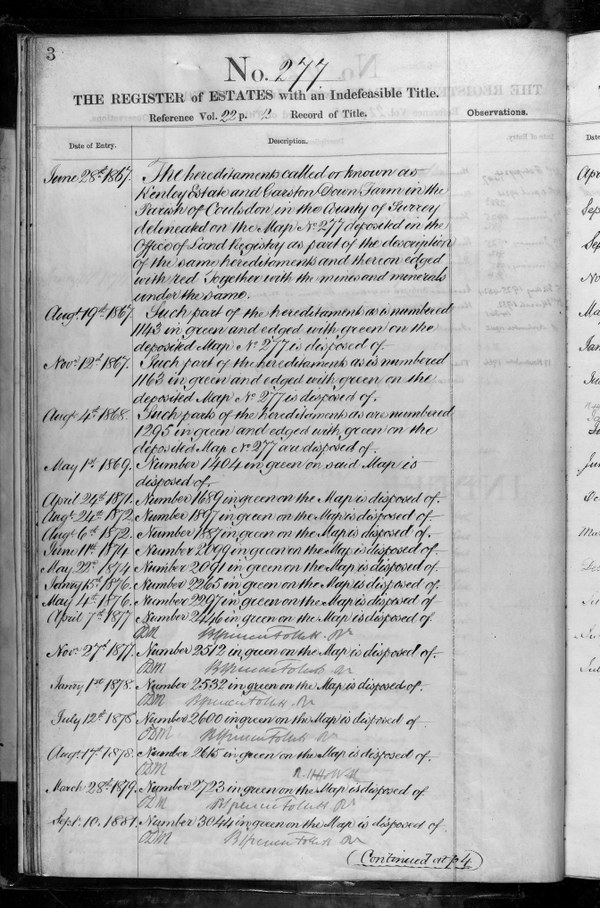 3
No. 277
THE REGISTER of ESTATES with an Indefeasible Title.
Reference Vol. 22 p. Record of Title.
Observations.
Date of Entry.
Description.
June 28th 1867. The hereditaments called or known as
Kenley Estate and Garston Down Farm in the
Parish of Coulsdon in the County of Surrey
delineated on the Map No 277 deposited in the
Office of Land Registry as part of the description
of the same hereditaments and thereon edged
with red Together with the mines and minerals
under the same.
Augt 19th 1867 Such part of the hereditaments as is numbered
1143 in green and edged with green on the
deposited Map No 277 is disposed of
Novr 12th 1867. Such part of the hereditaments as is numbered
1163 in green and edged with green on the
deposited Map No 277 is disposed of.
Augt 4th 1868. Such parts of the hereditaments as are numbered
1295 in green and edged with green on the
deposited Map No 277 are disposed of.
May 1st 1869. Number 1404 in green on said Map is
disposed of.
April 24th 1871. Number 1689 in green on the Map is disposed of.
Augt 24th 1872. Number 1897 in green on the Map is disposed of.
Augt 6th 1872. Number 1887 in green on the Map is disposed of.
June 11th 1874 Number 2099 in green on the Map is disposed of.
May 22d 1874 Number 2091 in green on the Map is disposed of.
Janry 15th 1876. Number 2265 in green on the Map is disposed of.
May 4th 1876. Number 2297 in green on the Map is disposed of.
April 7th 1877 Number 2446 in green on the Map is disposed of.
Novr 27th 1877. Number 2512 in green on the Map is disposed of.
Janry 1st 1878. Number 2532 in green on the Map is disposed of.
July 12th 1878 Number 2600 in green on the Map is disposed of
Augt 17th 1878. Number 2615 in green on the Map is disposed of.
March 28th 1879. Number 2723 in green on the Map is disposed of
Sept. 10. 1881. Number 3044 in green on the Map is disposed of.
(Continued at p 4.)